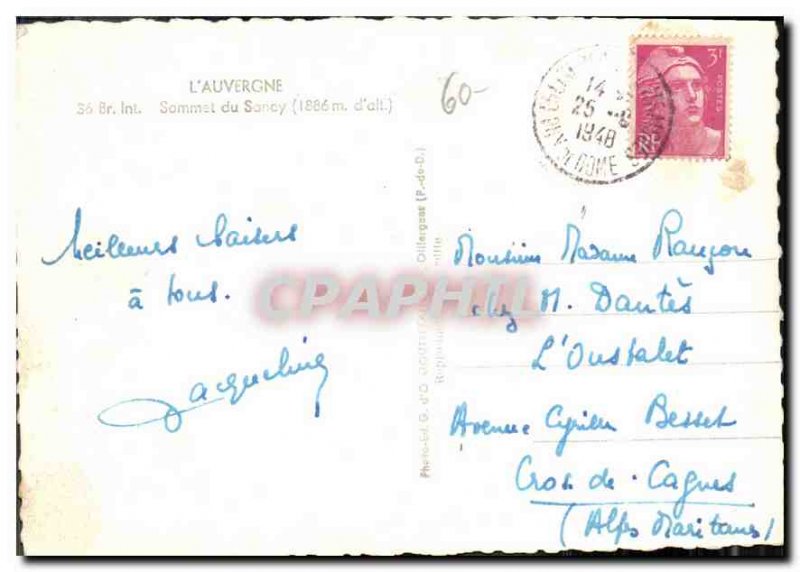 L'AUVERGNE
36 Br. Int. Sommet du Sancy (1886 m. d'alt.)
60-
14
25 -8
1948
DOME
3F
POSTES
RF
Meilleurs baisers
à tous.
Jacqueline
Monsieur Madame Rangon
chez M. Dantès
L'Oustalet
Avenue Cyrille Besset
Cros-de-Cagnes
(Alpes Maritimes)
Photo-Ed. G. d'O
Olliergues (P.-de-D.)
CPAPHIL